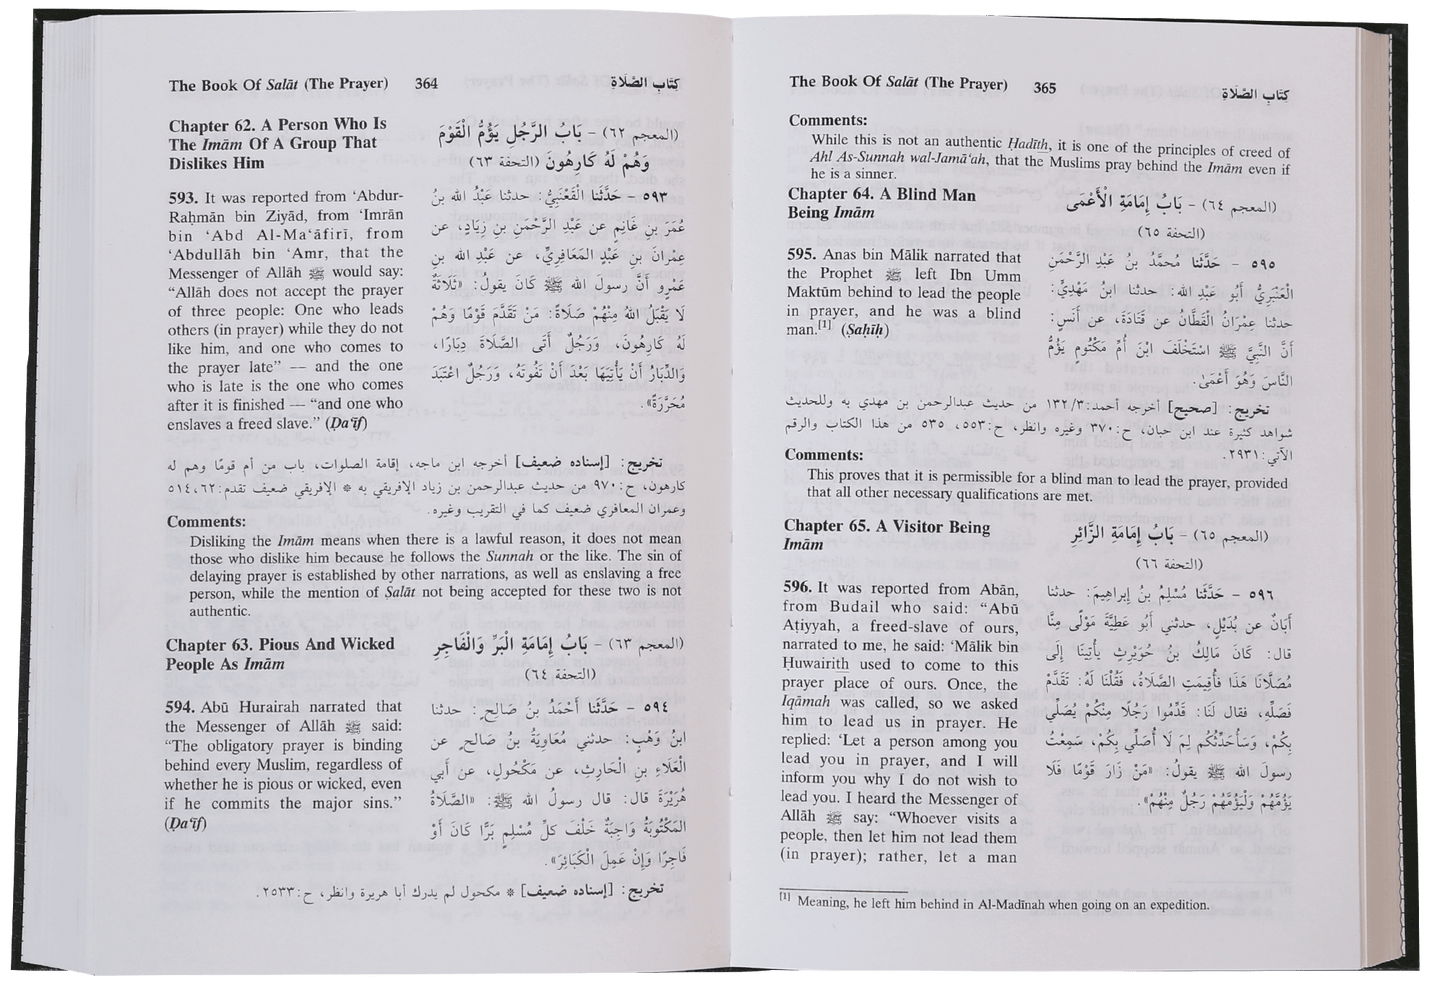 The Book Of Salāt (The Prayer) 364 كتَاب الصَّلَاةِ
Chapter 62. A Person Who Is
The Imām Of A Group That
Dislikes Him
(المعجم ٦٢) - بَابُ الرَّجُلِ يَؤُمُّ الْقَوْمَ
وَهُمْ لَهُ كَارِهُونَ (التحفة ٦٣)
593. It was reported from ‘Abdur-
Raḥmān bin Ziyād, from ‘Imrān
bin ‘Abd Al-Ma‘āfirī, from
‘Abdullāh bin ‘Amr, that the
Messenger of Allāh ﷺ would say:
“Allāh does not accept the prayer
of three people: One who leads
others (in prayer) while they do not
like him, and one who comes to
the prayer late” — and the one
who is late is the one who comes
after it is finished — “and one who
enslaves a freed slave.” (Ḍa‘īf)
٥٩٣ - حَدَّثَنَا الْقَعْنَبِيُّ: حدثنا عَبْدُ الله بنُ
عُمَرَ بنِ غَانِمٍ عن عَبْدِ الرَّحْمَنِ بنِ زِيَادٍ، عن
عِمْرانَ بنِ عَبْدٍ المَعَافِرِيِّ، عن عَبْدِ الله بنِ
عَمْرٍو أنَّ رسولَ الله ﷺ كَانَ يقولُ: «ثَلَاثَةٌ
لَا يَقْبَلُ اللهُ مِنْهُمْ صَلَاةً: مَنْ تَقَدَّمَ قَوْمًا وَهُمْ
لَهُ كَارِهُونَ، وَرَجُلٌ أَتَى الصَّلَاةَ دِبَارًا،
وَالدِّبَارُ أَنْ يَأْتِيَهَا بَعْدَ أَنْ تَفُوتَهُ، وَرَجُلٌ اعْتَبَدَ
مُحَرَّرَةً».
تخريج: [إسناده ضعيف] أخرجه ابن ماجه، إقامة الصلوات، باب من أم قومًا وهم له
كارهون، ح:٩٧٠ من حديث عبدالرحمن بن زياد الإفريقي به * الإفريقي ضعيف تقدم:٥١٤،٦٢
وعمران المعافري ضعيف كما في التقريب وغيره.
Comments:
Disliking the Imām means when there is a lawful reason, it does not mean
those who dislike him because he follows the Sunnah or the like. The sin of
delaying prayer is established by other narrations, as well as enslaving a free
person, while the mention of Ṣalāt not being accepted for these two is not
authentic.
Chapter 63. Pious And Wicked
People As Imām
(المعجم ٦٣) - بَابُ إِمَامَةِ الْبَرِّ وَالْفَاجِرِ
(التحفة ٦٤)
594. Abū Hurairah narrated that
the Messenger of Allāh ﷺ said:
“The obligatory prayer is binding
behind every Muslim, regardless of
whether he is pious or wicked, even
if he commits the major sins.”
(Ḍa‘īf)
٥٩٤ - حَدَّثَنَا أَحْمَدُ بنُ صَالِحٍ: حدثنا
ابنُ وَهْبٍ: حدثني مُعَاوِيَةُ بنُ صَالحٍ عن
الْعَلَاءِ بنِ الْحَارِثِ، عن مَكْحُولٍ، عن أبي
هُرَيْرَةَ قال: قال رسولُ الله ﷺ: «الصَّلَاةُ
المَكْتُوبَةُ وَاجِبَةٌ خَلْفَ كلِّ مُسْلِمٍ بَرًّا كَانَ أَوْ
فَاجِرًا وَإنْ عَمِلَ الْكَبَائِرَ».
تخريج: [إسناده ضعيف] * مكحول لم يدرك أبا هريرة وانظر، ح:٢٥٣٣.
The Book Of Salāt (The Prayer) 365 كتَاب الصَّلَاةِ
Comments:
While this is not an authentic Ḥadīth, it is one of the principles of creed of
Ahl As-Sunnah wal-Jamā‘ah, that the Muslims pray behind the Imām even if
he is a sinner.
Chapter 64. A Blind Man
Being Imām
(المعجم ٦٤) - بَابُ إِمَامَةِ الْأَعْمَى
(التحفة ٦٥)
595. Anas bin Mālik narrated that
the Prophet ﷺ left Ibn Umm
Maktūm behind to lead the people
in prayer, and he was a blind
man.[1] (Ṣaḥīḥ)
٥٩٥ - حَدَّثَنا مُحَمَّدُ بنُ عَبْدِ الرَّحْمَنِ
الْعَنْبَرِيُّ أَبُو عَبْدِ الله: حدثنا ابنُ مَهْدِيٍّ:
حدثنا عِمْرَانُ الْقَطَّانُ عن قَتَادَةَ، عن أنَسٍ:
أنَّ النَّبيَّ ﷺ اسْتَخْلَفَ ابْنَ أُمِّ مَكْتُومٍ يَؤُمُّ
النَّاسَ وَهُوَ أَعْمَىٰ.
تخريج: [صحيح] أخرجه أحمد:٣/ ١٣٢ من حديث عبدالرحمن بن مهدي به وللحديث
شواهد كثيرة عند ابن حبان، ح:٣٧٠ وغيره وانظر، ح:٥٥٣، ٥٣٥ من هذا الكتاب والرقم
الآتي:٢٩٣١.
Comments:
This proves that it is permissible for a blind man to lead the prayer, provided
that all other necessary qualifications are met.
Chapter 65. A Visitor Being
Imām
(المعجم ٦٥) - بَابُ إِمَامَةِ الزَّائِرِ
(التحفة ٦٦)
596. It was reported from Abān,
from Budail who said: “Abū
Aṭiyyah, a freed-slave of ours,
narrated to me, he said: ‘Mālik bin
Ḥuwairith used to come to this
prayer place of ours. Once, the
Iqāmah was called, so we asked
him to lead us in prayer. He
replied: ‘Let a person among you
lead you in prayer, and I will
inform you why I do not wish to
lead you. I heard the Messenger of
Allāh ﷺ say: “Whoever visits a
people, then let him not lead them
(in prayer); rather, let a man
٥٩٦ - حَدَّثَنا مُسْلِمُ بنُ إبراهِيمَ: حدثنا
أبَانُ عن بُدَيْلٍ، حدثني أبو عَطِيَّةَ مَوْلًى مِنَّا
قال: كَانَ مَالِكُ بنُ حُوَيْرِثٍ يأتِينَا إلَى
مُصَلَّانَا هَذَا فَأُقِيمَتِ الصَّلَاةُ، فَقُلْنَا لَهُ: تَقَدَّمْ
فَصَلِّهِ، فقال لَنَا: قَدِّمُوا رَجُلًا مِنْكُم يُصَلِّي
بِكُمْ، وَسَأُحَدِّثُكُم لِمَ لَا أُصَلِّي بِكُمْ، سَمِعْتُ
رسولَ الله ﷺ يقولُ: «مَنْ زَارَ قَوْمًا فَلَا
يَؤُمَّهُمْ وَلْيَؤُمَّهُمْ رَجُلٌ مِنْهُمْ».
[1] Meaning, he left him behind in Al-Madīnah when going on an expedition.